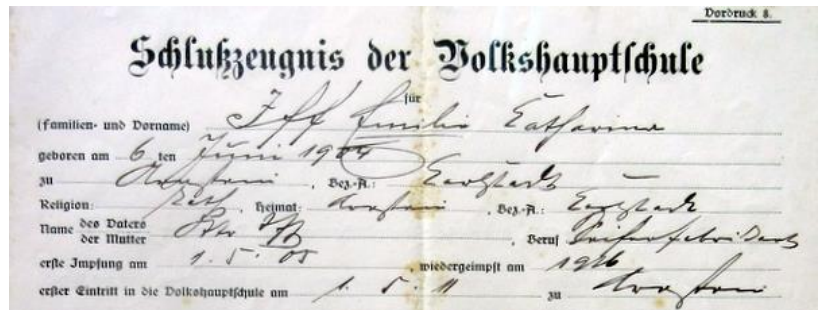 Vordruck 8.
Schlußzeugnis der Volkshauptschule
für
(Familien- und Vorname) Iff Emilie Catharina
geboren am 6 ten Juni 1904
zu , Bez.-A.: Carlstadt
Religion: Kath , Heimat: , Bez.-A.: Carlstadt
Name des Vaters
der Mutter Iff , Beruf
erste Impfung am 1. 5. 05 , wiedergeimpft am 1916
erster Eintritt in die Volkshauptschule am 1. 5. 11 zu